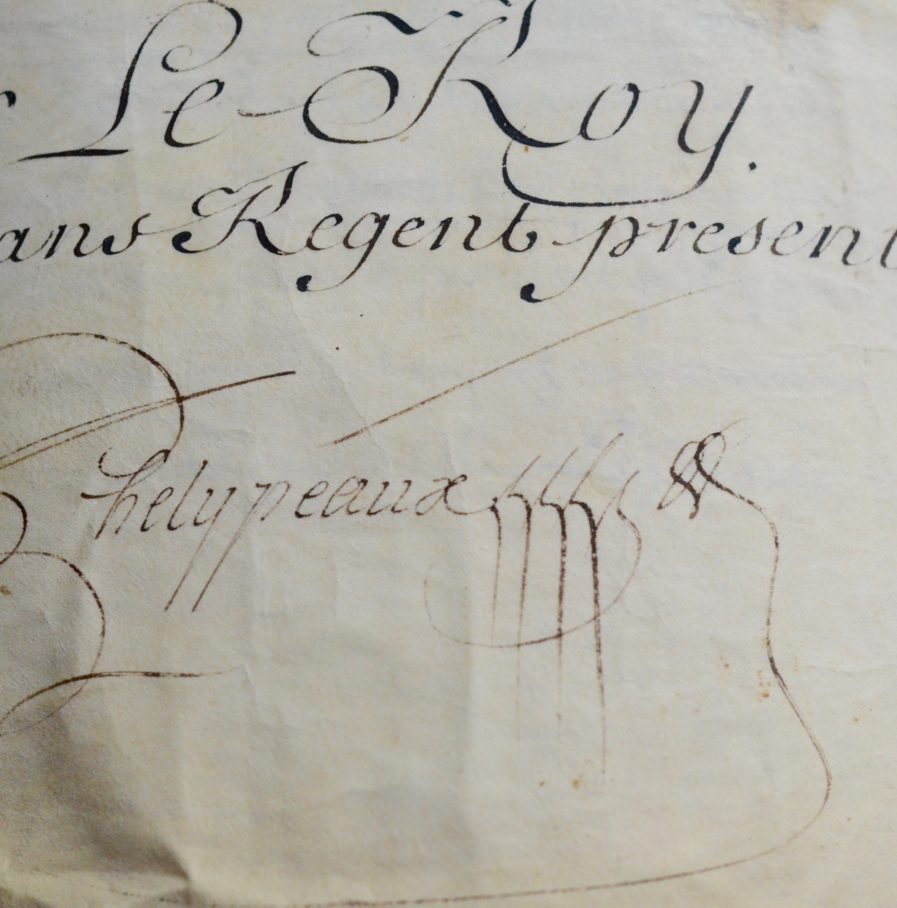 Le Roy.
ans Regent present
Phelypeaux